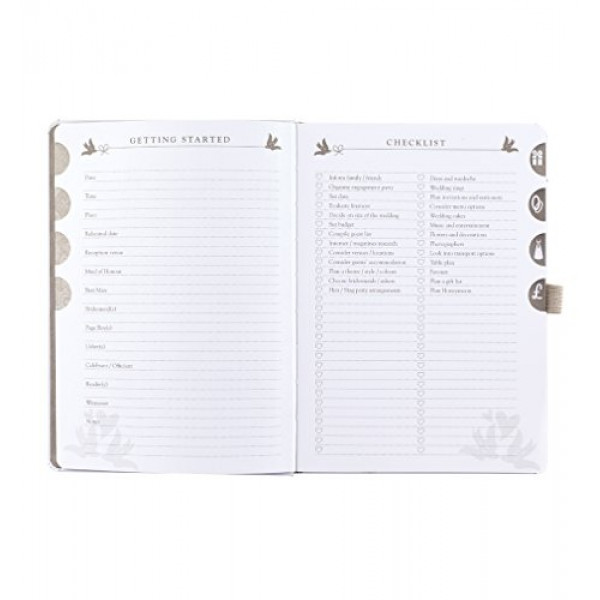 GETTING STARTED
Date
Time
Place
Rehearsal date
Reception venue
Maid of Honour
Best Man
Bridesmaid(s)
Page Boy(s)
Usher(s)
Celebrant / Officiant
Reader(s)
Witnesses
Notes
CHECKLIST
Inform family / friends
Organise engagement party
Set date
Evaluate finances
Decide on size of the wedding
Set budget
Compile guest list
Internet / magazines research
Consider venues / locations
Consider guests' accommodation
Plan a theme / style / colours
Choose bridesmaids / ushers
Hen / Stag party arrangements
Dress and
Wedding rings
Plan invitations and stationery
Consider menu options
Wedding cakes
Music and entertainment
Flowers and decorations
Photographers
Look into transport options
Table plan
Favours
Plan a gift list
Plan Honeymoon
£